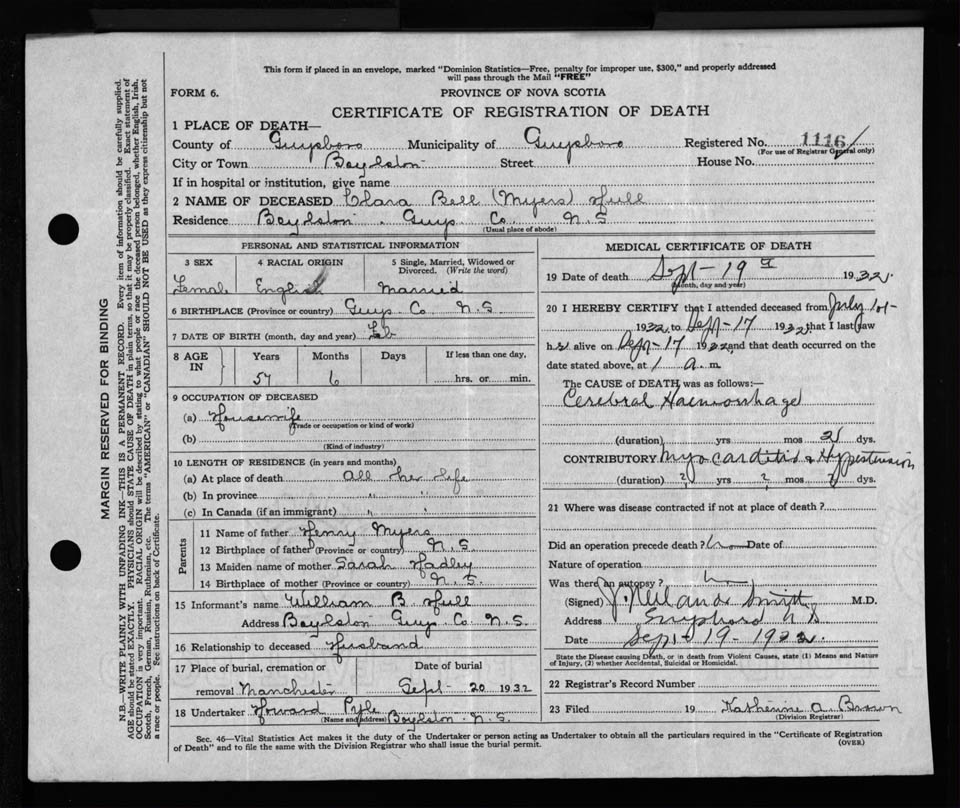 This form if placed in an envelope, marked "Dominion Statistics—Free, penalty for improper use, $300," and properly addressed
will pass through the Mail "FREE"
FORM 6. PROVINCE OF NOVA SCOTIA
CERTIFICATE OF REGISTRATION OF DEATH
1 PLACE OF DEATH—
County of Guysboro Municipality of Guysboro Registered No. 1116
(For use of Registrar General only)
City or Town Boylston Street House No.
If in hospital or institution, give name
2 NAME OF DECEASED Clara Bell (Myers) Hull
Residence Boylston Guys. Co. N.S
(Usual place of abode)
PERSONAL AND STATISTICAL INFORMATION
3 SEX 4 RACIAL ORIGIN 5 Single, Married, Widowed or
Divorced. (Write the word)
Female English Married
6 BIRTHPLACE (Province or country) Guys. Co. N.S.
7 DATE OF BIRTH (month, day and year) Feb
8 AGE IN Years Months Days If less than one day,
57 6 hrs. or min.
9 OCCUPATION OF DECEASED
(a) Housewife
(Trade or occupation or kind of work)
(b)
(Kind of industry)
10 LENGTH OF RESIDENCE (in years and months)
(a) At place of death all her life
(b) In province " "
(c) In Canada (if an immigrant) " "
Parents
11 Name of father Henry Myers
12 Birthplace of father (Province or country) N.S.
13 Maiden name of mother Sarah Hadley
14 Birthplace of mother (Province or country) N.S.
15 Informant's name William B Hull
Address Boylston Guys. Co. N.S.
16 Relationship to deceased Husband
17 Place of burial, cremation or Date of burial
removal Manchester Sept 20 1932
18 Undertaker Howard Pyle
(Name and address) Boylston N.S.
MEDICAL CERTIFICATE OF DEATH
19 Date of death Sept-19 1932.
(Month, day and year)
20 I HEREBY CERTIFY that I attended deceased from July 1st
1932 to Sept-17 1932, that I last saw
her alive on Sept-17 1932, and that death occurred on the
date stated above, at 1 a. m.
The CAUSE of DEATH was as follows:—
Cerebral Haemorrhage
(duration) yrs mos 2 dys.
CONTRIBUTORY Myocarditis & Hypertension
(duration) ? yrs ? mos ? dys.
21 Where was disease contracted if not at place of death?
Did an operation precede death? no Date of
Nature of operation
Was there an autopsy? no
(Signed) Smith M.D.
Address Guysboro N S
Date Sept 19-1932.
State the Disease causing Death, or in death from Violent Causes, state (1) Means and Nature
of Injury, (2) whether Accidental, Suicidal or Homicidal.
22 Registrar's Record Number
23 Filed 19 Katherine A. Brown
(Division Registrar)
Sec. 46—Vital Statistics Act makes it the duty of the Undertaker or person acting as Undertaker to obtain all the particulars required in the "Certificate of Registration
of Death" and to file the same with the Division Registrar who shall issue the burial permit. (OVER)
MARGIN RESERVED FOR BINDING
N.B.—WRITE PLAINLY WITH UNFADING INK—THIS IS A PERMANENT RECORD. Every item of information should be carefully supplied.
AGE should be stated EXACTLY. PHYSICIANS should STATE CAUSE OF DEATH in plain terms, so that it may be properly classified. Exact statement of
OCCUPATION is very important. RACIAL ORIGIN will be described by stating to what people or race the deceased person belonged, whether English, Irish,
Scotch, French, German, Russian, Ruthenian, etc. The terms "AMERICAN" or "CANADIAN" SHOULD NOT BE USED as they express citizenship but not
a race or people. See instructions on back of Certificate.